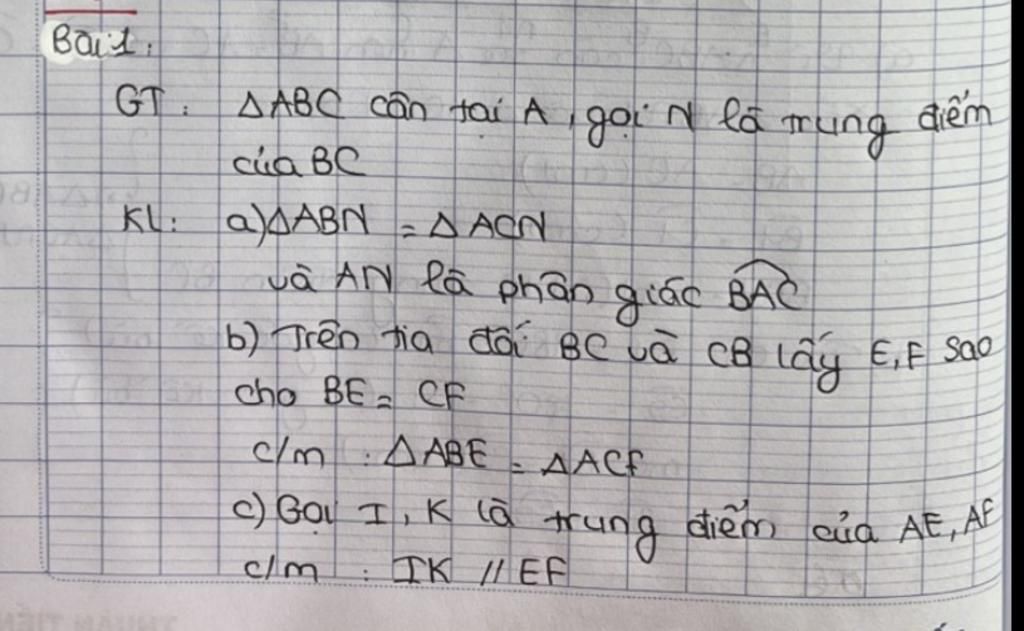 Bài 1.
GT: ΔABC cân tại A, gọi N là trung điểm
của BC
KL: a) ΔABN = ΔACN
và AN là phân giác BAC
b) Trên tia đối BC và CB lấy E, F sao
cho BE = CF
c/m: ΔABE = ΔACF
c) Gọi I, K là trung điểm của AE, AF
c/m: IK // EF